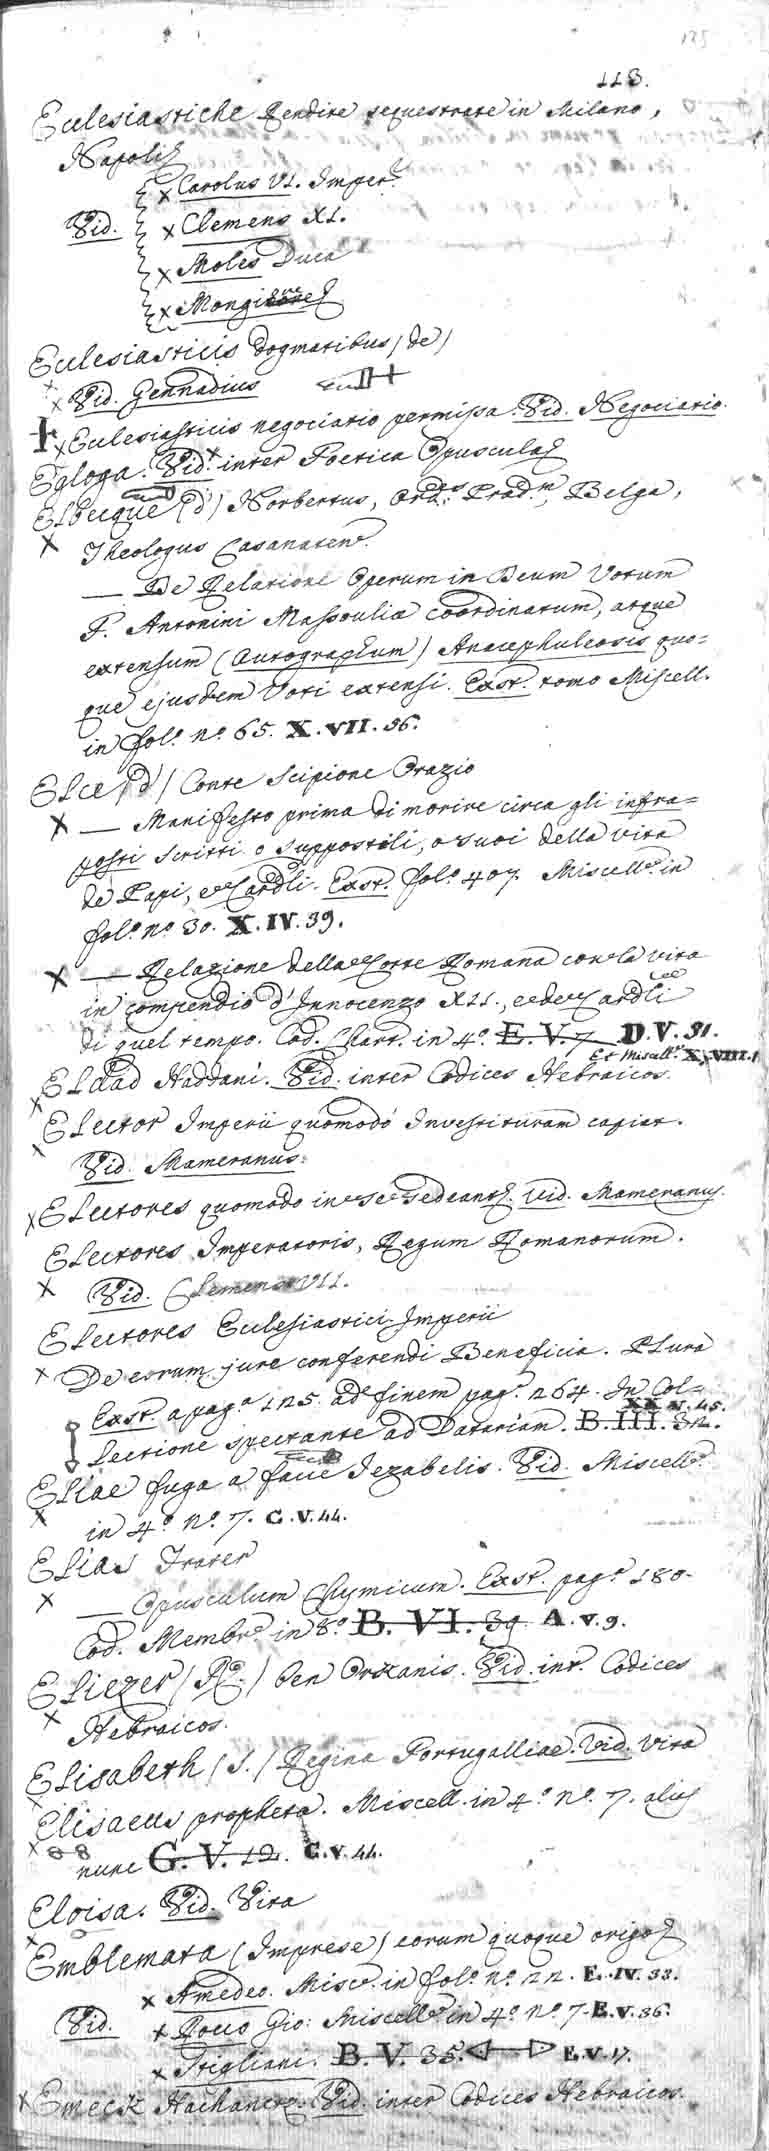 135
118.
Ecclesiastiche Rendite sequestrate in Milano,
Napoli
× Carolus VI. Imper.r
Vid. × Clemens XI.
× Moles Duca
× Mongitore
Ecclesiasticis dogmatibus (de)
× Vid. Gennadius
× Ecclesiasticis negociatio permissa. Vid. Negociatio.
Egloga. Vid. inter Poetica Opuscula
Elbecque (d') Norbertus, Ord.s Præd.m, Belga,
× Theologus Casanaten.
— De Relatione Operum in Deum Votum
F. Antonini Massoulié coordinatum, atque
extensum (Autographum) Anacephaleosis quo=
que ejusdem Voti extensi. Exst. tomo Miscell.
in fol.o n.o 65. X.VII.36.
Elce (d') Conte Scipione Orazio
× — Manifesto prima di morire circa gli infra=
posti scritti o suppostili, o suoi della vita
de Papi, e Cardli. Exst. fol.o 407. Miscell. in
fol.o n.o 30. X.IV.39.
× — Relazione della Corte Romana con la vita
in compendio d'Innocenzo XII., e de Cardli
di quel tempo. Cod. Chart. in 4.o E.V.7 D.V.31.
Et Miscell. X.VIII.
× Eldad Haddani. Vid. inter Codices Hebraicos.
× Elector Imperii quomodo Investituram capiat.
Vid. Mameranus.
× Electores quomodo inter se sedeant. Vid. Mameranus.
Electores Imperatoris, Regum Romanorum.
× Vid. Clemens VII.
Electores Ecclesiastici Imperii
× De eorum jure conferendi Beneficia. Plura
Exst. a pag.a 125 ad finem pag. 264. In Col=
lectione spectante ad Datariam. B.III.32. XX.IV.45.
Eliae fuga a facie Jezabelis. Vid. Miscell.
× in 4.o n.o 7. C.V.44.
Elias Frater
× — Opusculum Chymicum. Exst. pag. 180.
Cod. Membr. in 8.o B.VI.39 A.V.9.
Eliezer (R.) ben Orcanis. Vid. int. Codices
× Hebraicos.
Elisabeth (S.) Regina Portugalliae. Vid. Vita
× Elisaeus propheta. Miscell. in 4.o n.o 7. alias
× 88 nunc G.V.12. C.V.44.
Eloisa. Vid. Vita
× Emblemata (Imprese) eorum quoque origo
× Amedeo. Misc. in fol.o n.o 22. E.IV.33.
Vid. × Rocco Gio: Miscell. in 4.o n.o 7. E.V.36.
× Stigliani. B.V.35. E.V.17.
× Emeck Hachane. Vid. inter Codices Hebraicos.